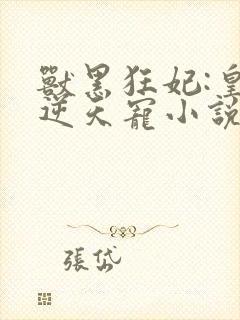 獸黑狂妃:皇
逆天寵小說
張岱